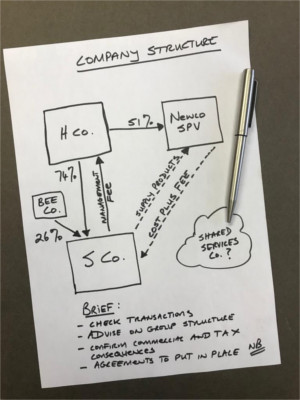 COMPANY STRUCTURE
H CO.
51%
NEWCO
SPV
74%
MANAGEMENT
FEE
BEE
CO.
26%
SUPPLY PRODUCTS
COST PLUS FEE
S CO.
SHARED
SERVICES
CO. ?
BRIEF:
- CHECK TRANSACTIONS
- ADVISE ON GROUP STRUCTURE
- CONFIRM COMMERCIAL AND TAX
CONSEQUENCES
- AGREEMENTS TO PUT IN PLACE NB